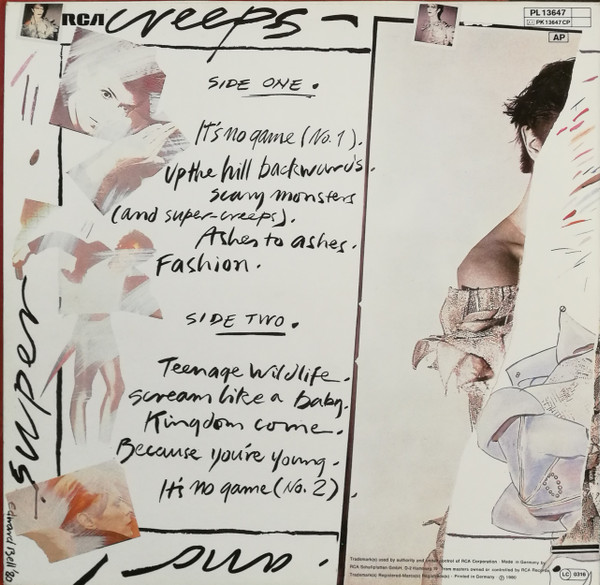 RCA
creeps
PL 13647
PK 13647 CP
AP
SIDE ONE.
It's no game (No. 1).
Up the hill backwards.
scary monsters
(and super-creeps).
Ashes to ashes.
Fashion.
SIDE TWO.
Teenage Wildlife.
scream like a baby.
Kingdom come.
Because you're young.
It's no game (No. 2).
super
and
Edward Bell '80
Trademark(s) used by authority and control of RCA Corporation · Made in Germany by
RCA Schallplatten GmbH, from masters owned or controlled by RCA Records
Trademark(s) Registered-Marca(s) Registrada(s) · Printed in Germany © 1980
LC 0316